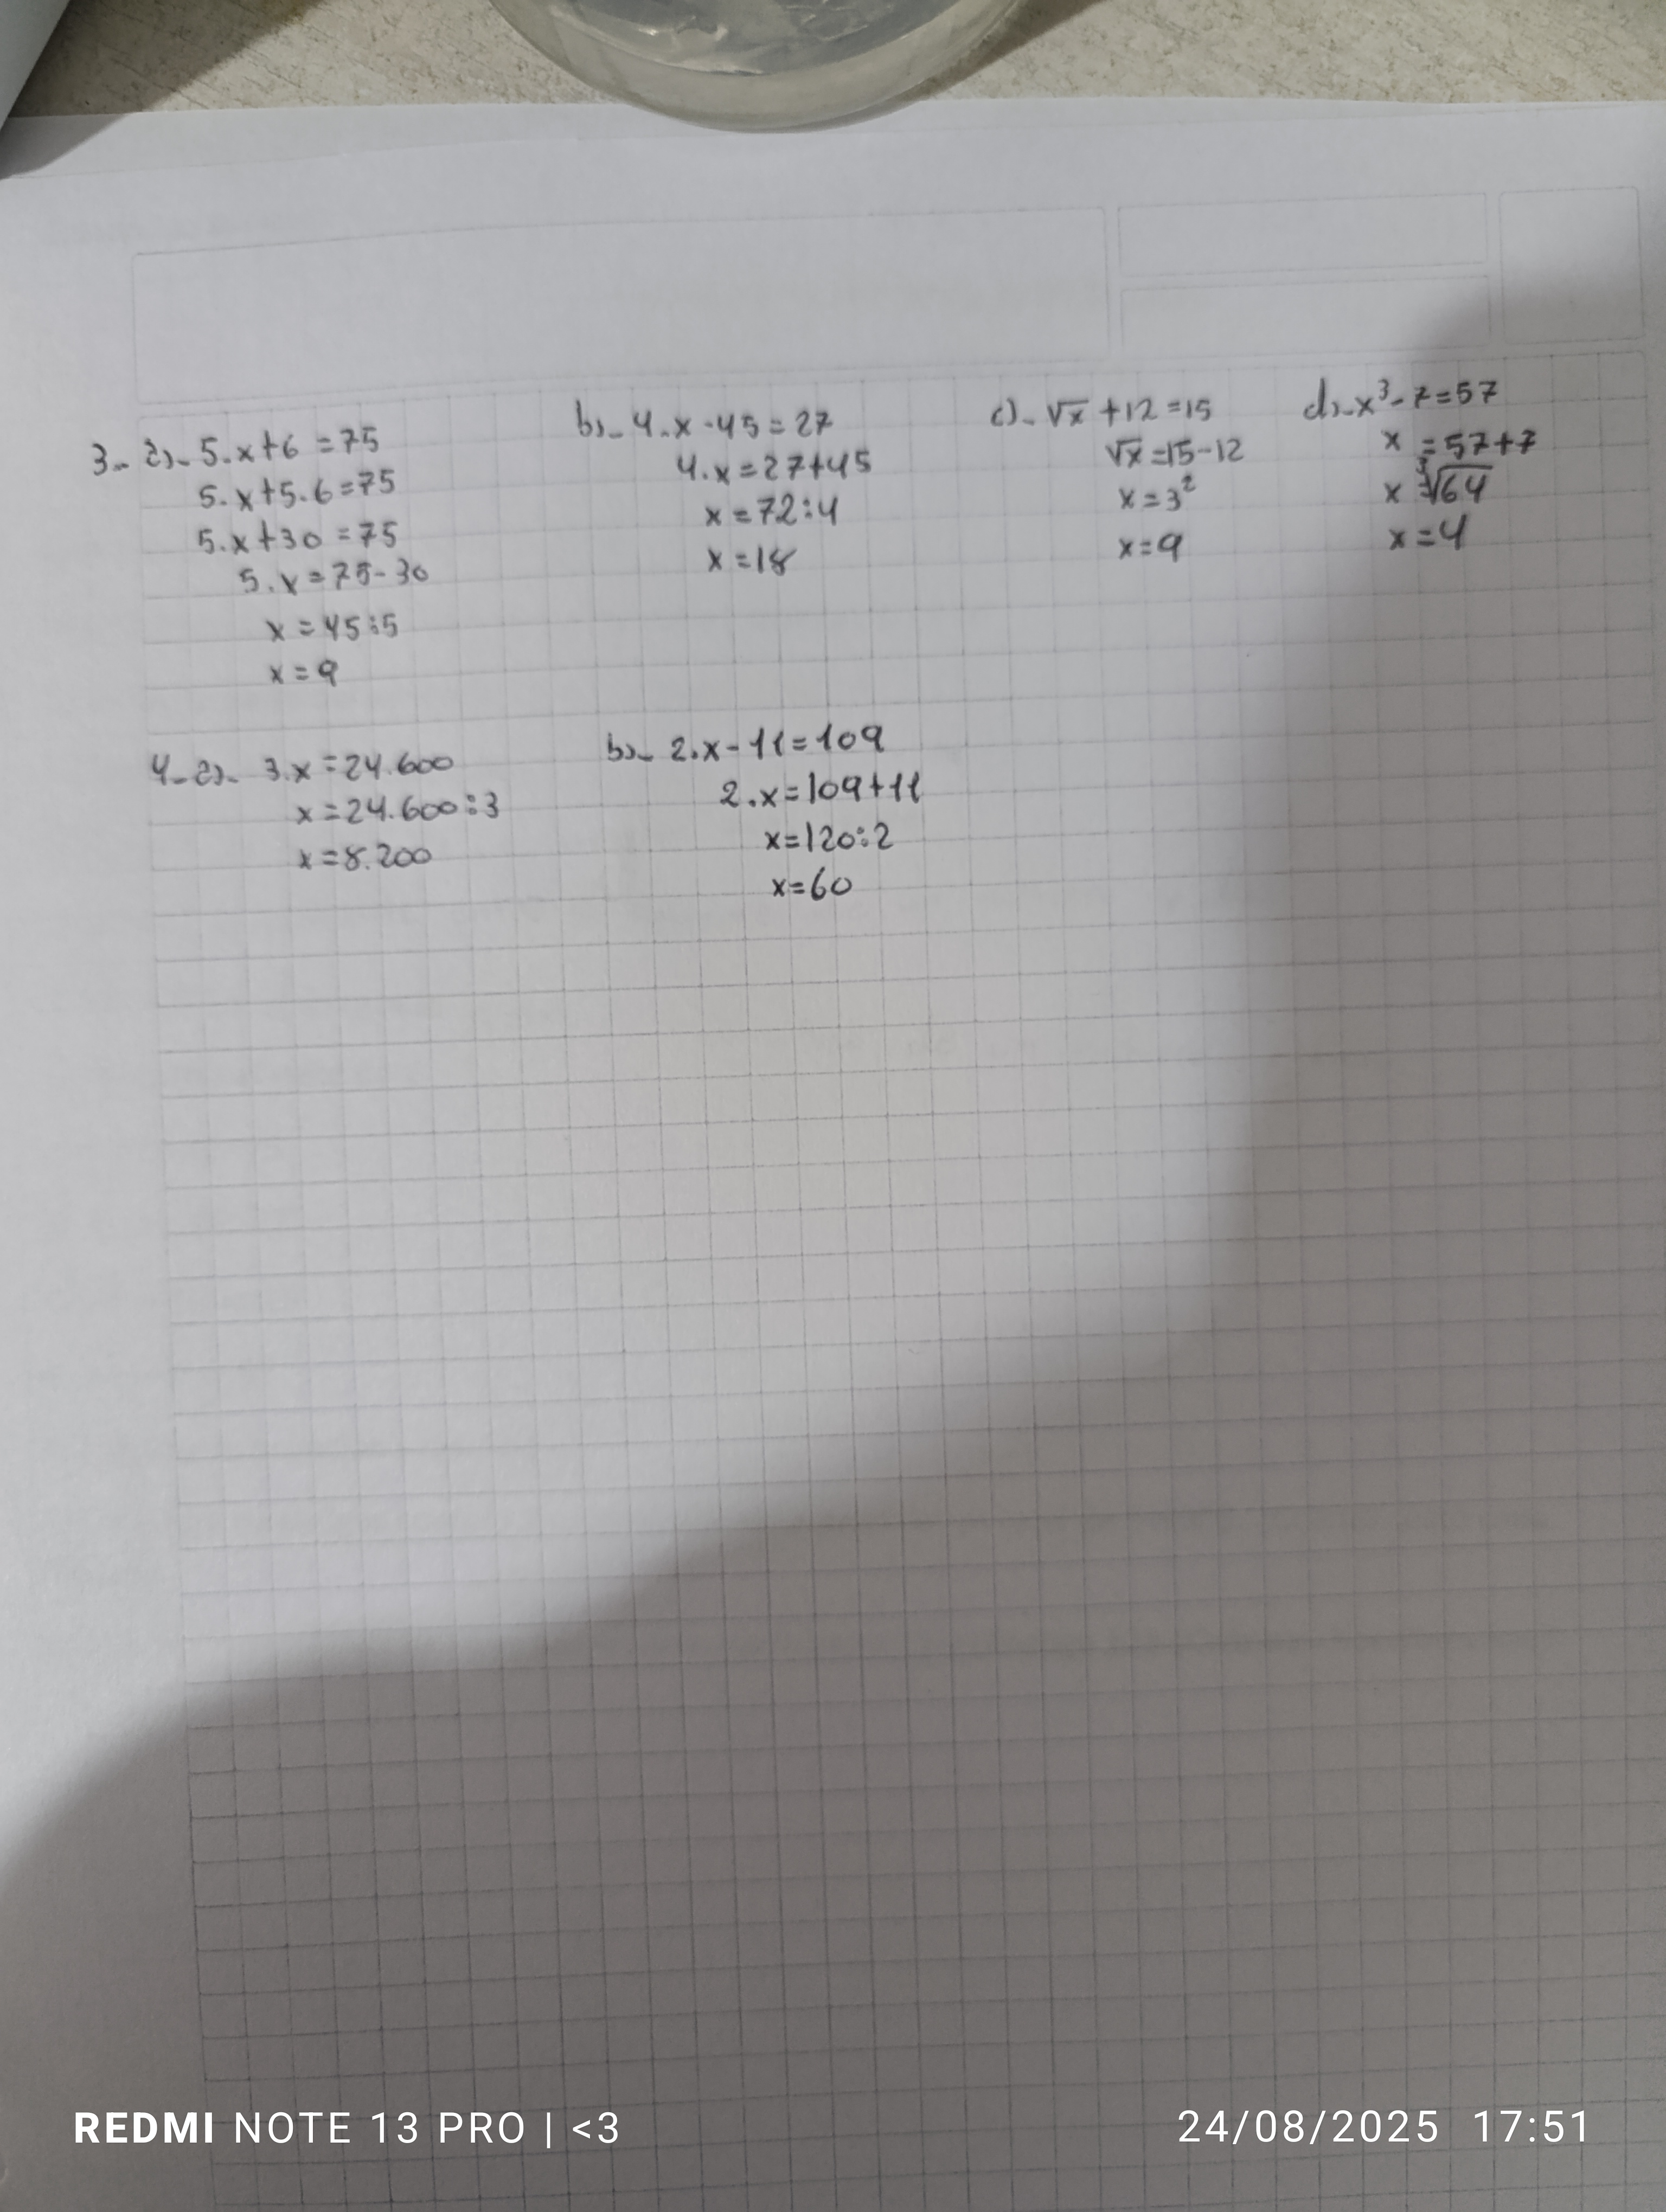 3- a)- 5.x+6 =75
5.x+5.6=75
5.x+30=75
5.x=75-30
x=45:5
x=9
b)- 4.x-45=27
4.x=27+45
x=72:4
x=18
c)- √x +12=15
√x=15-12
x=3²
x=9
d)- x³-7=57
x =57+7
x=∛64
x=4
4- a)- 3.x=24.600
x=24.600:3
x=8.200
b)- 2.x-11=109
2.x=109+11
x=120:2
x=60
REDMI NOTE 13 PRO | <3
24/08/2025 17:51